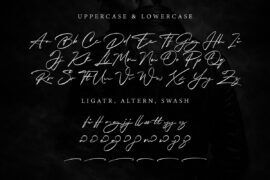 UPPERCASE & LOWERCASE
Aa Bb Cc Dd Ee Ff Gg Hh Ii
Jj Kk Ll Mm Nn Oo Pp Qq
Rr Ss Tt Uu Vv Ww Xx Yy Zz
LIGATR, ALTERN, SWASH